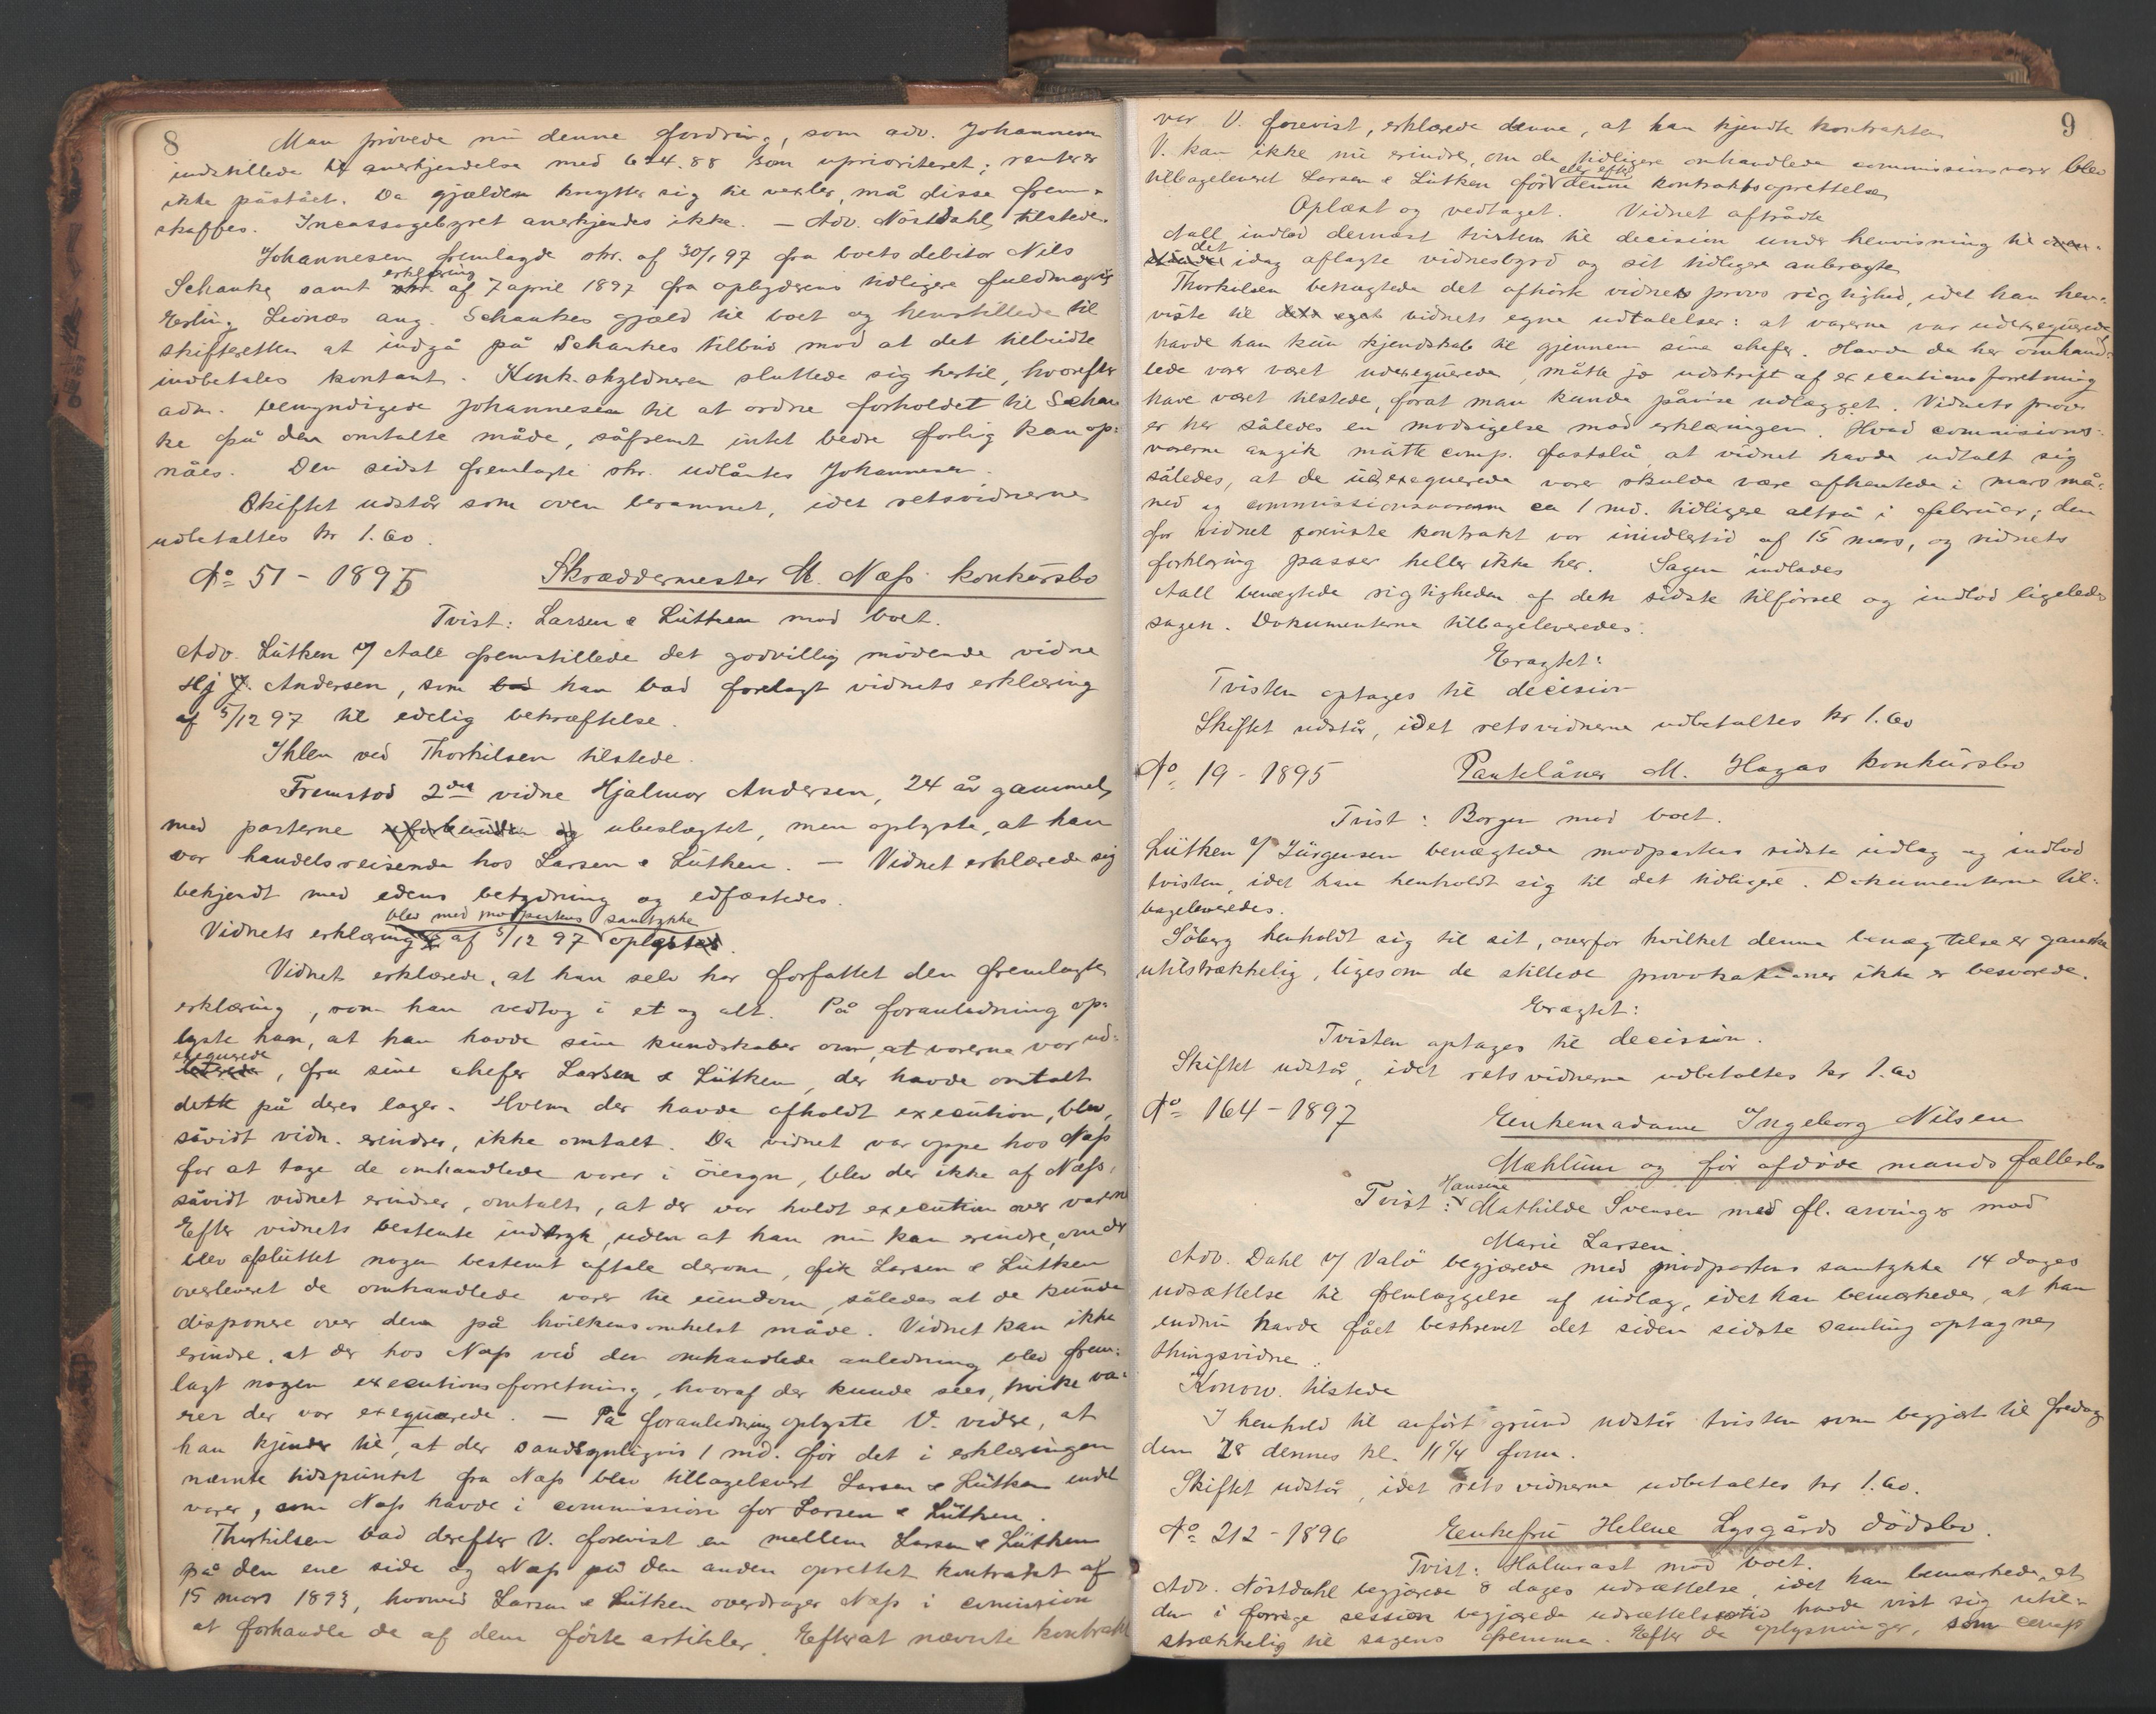 8
Man prøvede nu denne fordring, som adv. Johannesen
indstillede til anerkjendelse med 624.88 som uprioriteret; renter er
ikke påstået. Da gjælden knytter sig til vexler, må disse frem-
skaffes. Incassogebyret anerkjendes ikke. — Adv. Nöstdahl tilstede.
Johannesen fremlagde skr. af 30/1 97 fra boets debitor Nils
Schanke samt erklæring af 7 april 1897 fra opbyderens tidligere fuldmægtig
Erling Lionæs ang. Schankes gjæld til boet og henstillede til
skifteretten at indgå på Schankes tilbud mod at det tilbudte
indbetales kontant. Konk.skyldneren sluttede sig hertil, hvorefter
adm. bemyndigede Johannesen til at ordne forholdet til Schan
ke på den omtalte måde, såfremt intet bedre forlig kan op-
nåes. Den sidst fremlagte skr. udlåntes Johannesen.
Skiftet udstår som oven berammet, idet retsvidnerne
udbetaltes kr 1.60.
No 51 - 1895 Skræddermester M. Næss konkursbo
Tvist: Larsen & Lütken mod boet.
Adv. Lütken v/ Aall fremstillede det godvillig mödende vidne
Hj J. Andersen, som bad han bad forelagt vidnets erklæring
af 5/12 97 til edelig bekræftelse.
Ihlen ved Thorkilsen tilstede.
Fremstod 2det vidne Hjalmar Andersen, 24 år gammel,
med parterne uforbunden og ubeslægtet, men oplyste, at han
var handelsreisende hos Larsen & Lütken. — Vidnet erklærede sig
bekjendt med edens betydning og edfæstedes.
blev med modpartens samtykke
Vidnets erklæring af 5/12 97 oplæstes.
Vidnet erklærede, at han selv har forfattet den fremlagte
erklæring, som han vedtog i et og alt. På foranledning op-
lyste han, at han havde sin kundskaber om, at varerne var ud-
exequerede, fra sine chefer Larsen & Lütken, der havde omtalt
dette på deres lager. Hvem der havde afholdt execution, blev,
såvidt vidn. erindrer, ikke omtalt. Da vidnet var oppe hos Næss
for at tage de omhandlede varer i öiesyn, blev der ikke af Næss,
såvidt vidnet erindrer, omtalt, at der var holdt execution over varerne
Efter vidnets bestemte indtryk, uden at han nu kan erindre, om der
blev afsluttet nogen bestemt aftale derom, fik Larsen & Lütken
overleveret de omhandlede varer til eiendom, således at de kunde
disponere over dem på hvilkensomhelst måde. Vidnet kan ikke
erindre, at der hos Næss ved den omhandlede anledning blev frem-
lagt nogen executionsforretning, hvoraf der kunde sees, hvilke va-
rer der var exequerede. — På foranledning oplyste V. videre, at
han kjender til, at der sandsynligvis 1 md. för det i erklæringen
nævnte tidspunkt fra Næss blev tilbageleveret Larsen & Lütken endel
varer, som Næss havde i commission for Larsen & Lütken.
Thorkilsen bad derefter V. forevist en mellem Larsen & Lütken
på den ene side og Næss på den anden oprettet kontrakt af
15 mars 1893, hvorved Larsen & Lütken overdrager Næss i comission
at forhandle de af dem förte artikler. Efterat nævnte kontrakt
9
var V. forevist, erklærede denne, at han kjendte kontrakten
V. kan ikke nu erindre, om de tidligere omhandlede commissionsvarer blev
tilbageleveret Larsen & Lütken för eller efter denne kontraktsoprettelse
Oplæst og vedtaget. Vidnet aftrådte
Aall indlod dernæst tvisten til decision under henvisning til
det idag aflagte vidnesbyrd og sit tidligere anbragte
Thorkilsen benægtede det afhörte vidnes provs rigtighed, idet han hen-
viste til vidnets egne udtalelser: at varerne var udexequerede
havde han kun kjendskab til gjennem sine chefer. Havde de her omhand-
lede varer været udexequerede, måtte jo udskrift af executionsforretning
have været tilstede, forat man kunde påvise udlægget. Vidnets prov
er her således en modsigelse mod erklæringen. Hvad commisions-
varerne angik måtte comp. fastslå, at vidnet havde udtalt sig
således, at de udexequerede varer skulde være afhentede i mars må-
ned og commissionsvarerne ca 1 md. tidligere altså i februar; den
for vidnet foreviste kontrakt var imidlertid af 15 mars, og vidnets
forklaring passer heller ikke her. Sagen indlades
Aall benægtede rigtigheden af dette sidste tilförsel og indlod ligeledes
sagen. Dokumenterne tilbageleveredes.
Eragtet:
Tvisten optages til decision
Skiftet udstår, idet retsvidnerne udbetaltes kr 1.60
No 19 - 1895 Pantelåner M. Hagas konkursbo
Tvist: Borgen mod boet.
Lütken v/ Jürgensen benægtede modpartens sidste indlæg og indlod
tvisten, idet han henholdt sig til det tidligere. Dokumenterne til-
bageleveredes.
Söberg henholdt sig til sit, overfor hvilket denne benægtelse er ganske
utilstrækkelig, ligesom de stillede provokationer ikke er besvarede.
Eragtet:
Tvisten optages til decission.
Skiftet udstår, idet retsvidnerne udbetaltes kr 1.60
No 164 - 1897 Enkemadame Ingeborg Nilsen
Mæhlum og för afdöde mands fællesbo
Tvist: Hansine Mathilde Svensen med fl. arvinger mod
Marie Larsen.
Adv. Dahl v/ Valö begjærede med modpartens samtykke 14 dages
udsættelse til fremlæggelse af indlæg, idet han bemærkede, at han
endnu havde fået beskrevet det siden sidste samling optagne
thingsvidne.
Konow. tilstede
I henhold til anfört grund udstår tvisten som begjært til fredag
den 28 dennes kl. 11 1/4 form.
Skiftet udstår, idet retsvidnerne udbetaltes kr 1.60.
No 212 - 1896 Enkefru Helene Lysgårds dödsbo.
Tvist: Halvorsen mod boet.
Adv. Nöstdahl begjærede 8 dages udsættelse, idet han bemærkede, at
den i forrige session begjærede udsættelsestid havde vist sig util-
strækkelig til sagens fremme. Efter de oplysninger, som